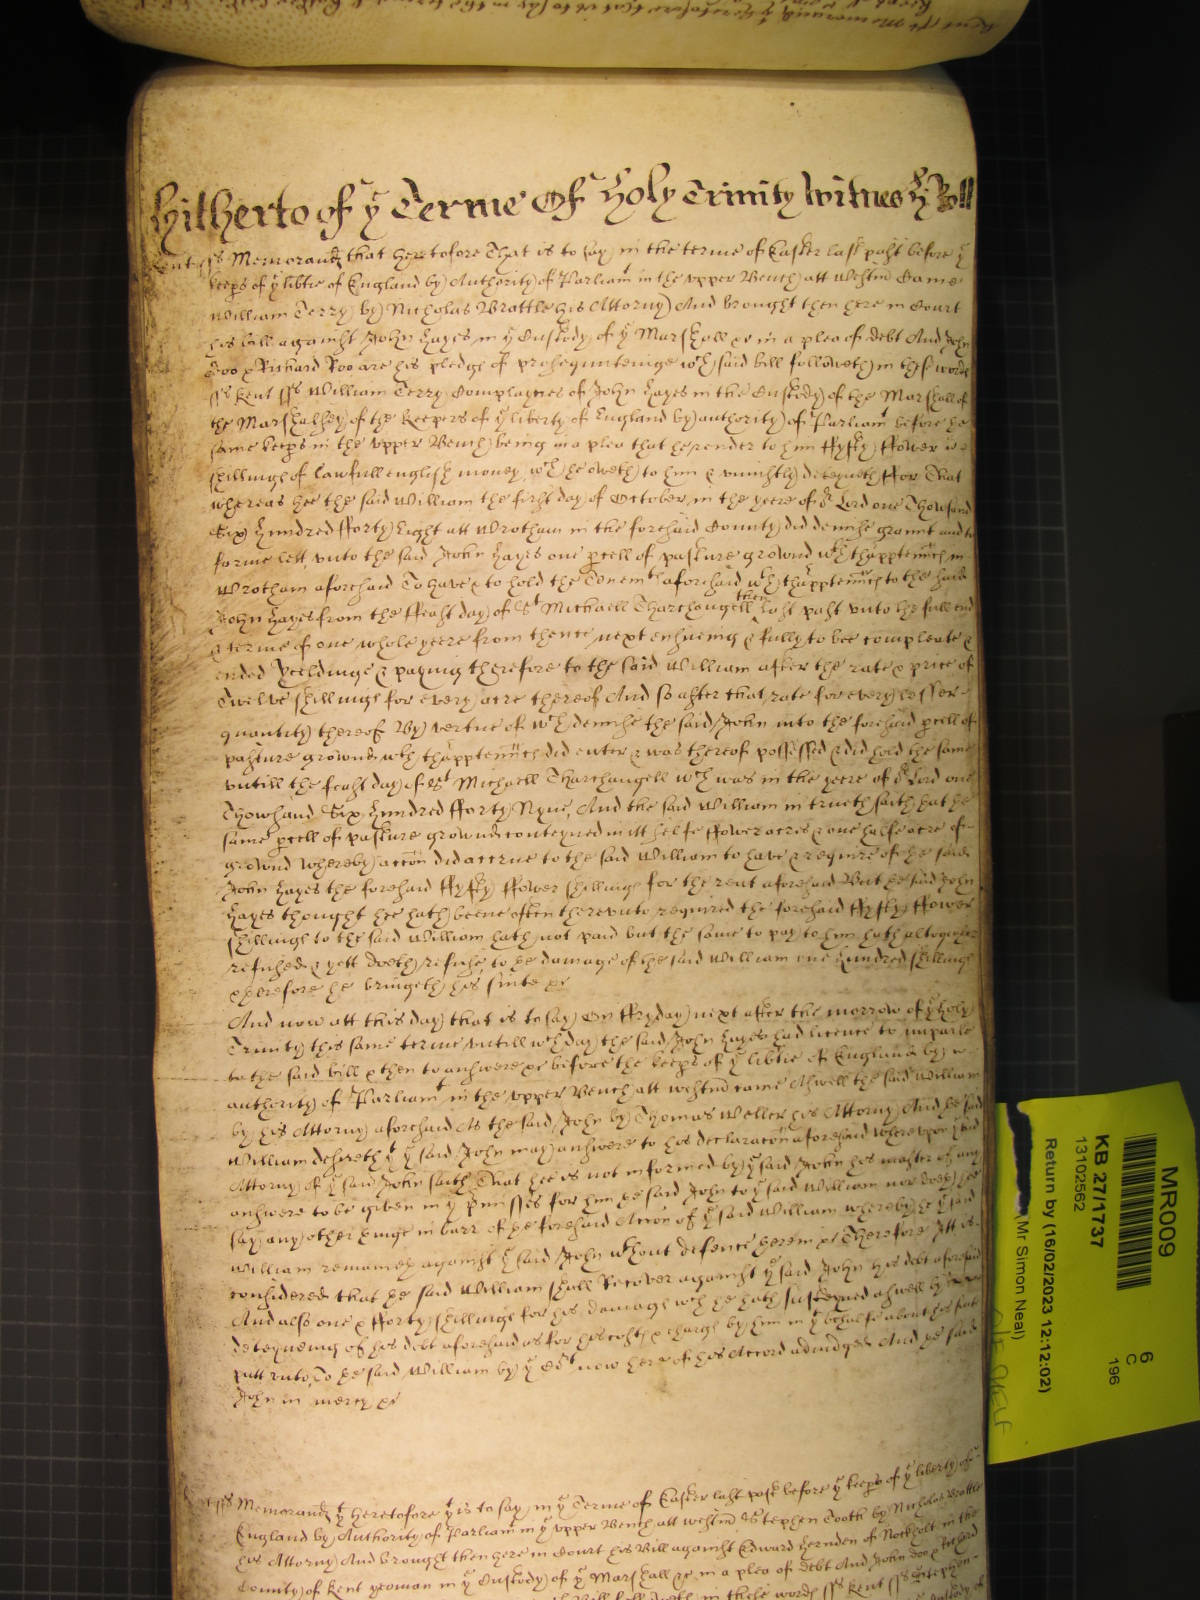 Hitherto of yͤ Terme Of Holy Trinity Witnes yͤ Roll
Kent ss Memorand that heretofore That is to say in the terme of Easter last past before yͤ
keeps of yͤ libtie of England by Authority of Parliamᵗ in the vpper Bench att Westm Came
William Terry by Nicholas Brattle his Attorny And brought then here in Court
his bill against John Hayes in yͤ Custody of yͤ Marshall &c in a plea of debt And John
Doo & Richard Roo are his pledge of prosequutinge wᶜʰ said bill followeth in these words
ss Kent ss William Terry Complaynes of John Hayes in the Custody of the Marshall of
the Marshalsey of the Keepers of yͤ liberty of England by authority of Parliamᵗ before the
same keeps in the vpper Bench being in a plea that he render to him ffyfty ffower
shillings of lawfull english money wᶜʰ he oweth to him & vniustly deteyneth ffor That
whereas hee the said William the first day of October in the yeere of oʳ Lord one Thowsand
Six Hundred fforty Eight att Wrotham in the foresaid County did demise graunt and to
farme lett vnto the said John Hayes one pcell of pasture ground wᵗʰ thapptenncs in
Wrotham aforesaid To have & to hold the Tenemᵗˢ aforesaid wᵗʰ thapptenncs to the said
John Hayes from the ffeast day of Sᵗ Michaell Tharchangell then last past vnto the full end
& terme of one whole yeere from thence next ensueing & fully to bee compleate &
ended Yeeldinge & paying therefore to the said William after the rate & price of
Twelve shillings for every acre thereof And so after that rate for every lesser
quantity thereof By vertue of wᶜʰ demise the said John into the foresaid pcell of
pasture ground wᵗʰ thapptenncs did enter & was thereof possessed & did hold the same
vntill the feast day of Sᵗ Michaell Tharchangell wᶜʰ was in the yeere of oʳ Lord one
Thowsand Six Hundred fforty Nyne, And the said William in trueth saith that the
same pcell of pasture ground conteyned in itt selfe ffower acres & one halfe acre of
ground whereby accon did accrue to the said William to have & require of the said
John Hayes the foresaid ffyfty ffower shillings for the rent aforesaid But the said John
Hayes thought hee hath beene often therevnto required the foresaid ffyfty ffower
shillings to the said William hath not paid but the same to pay to him hath altogether
refused & yett doeth refuse, to the damage of the said William one hundred shillings
& therefore he bringeth his suite &c
And now att this day that is to say On ffryday next after the morrow of yͤ holy
Trinity this same terme vntill wᶜʰ day the said John Hayes had licence to imparle
to the said bill & then to answere &c before the keeps of yͤ libtie of England by
authority of Parliamᵗ in the vpper Bench att westm came Aswell the said William
by his Attorny aforesaid As the said John by Thomas Weller his Attorny And the said
William desireth yᵗ yͤ said John may answere to his declaracon aforesaid Wherevpon yͤ said
Attorny of yͤ said John saith That hee is not informed by yͤ said John his master of any
answere to be given in yͤ pmisses for him the said John to yͤ said William nor doeth hee
say any other thinge in barr of the foresaid Accon of yͤ said William whereby the yͤ said
William remaineth against yͤ said John wᵗʰout defence therein &c Therefore Itt is
considered that the said William shall Recover against yͤ said John his debt aforesaid
And also one & fforty shillings for his damage wᶜʰ he hath susteyned aswell by
deteyneing of his debt aforesaid as for his costs & charge by him in yͤ behalfe about his suite
putt vnto, To the said William by yͤ Coᵗ now here of his Accord adiudged And the said
John in mercy &c
ss Memorand yᵗ heretofore yᵗ is to say in yͤ Terme of Easter last past before yͤ keeps of yͤ liberty of
England by Authority of Parliam in yͤ vpper Bench att westm Stephen Tooth by Nicholas Brattle
his Attorny And brought then here in Court his Bill against Edward Hernden of Nockholt in the
County of Kent yeoman in yͤ Custody of yͤ Marshall &c in a plea of debt And John doo & Richard
MR009
6
C
196
KB 27/1737
13102562
Return by (16/02/2023 12:12:02)
(Mr Simon Neal)